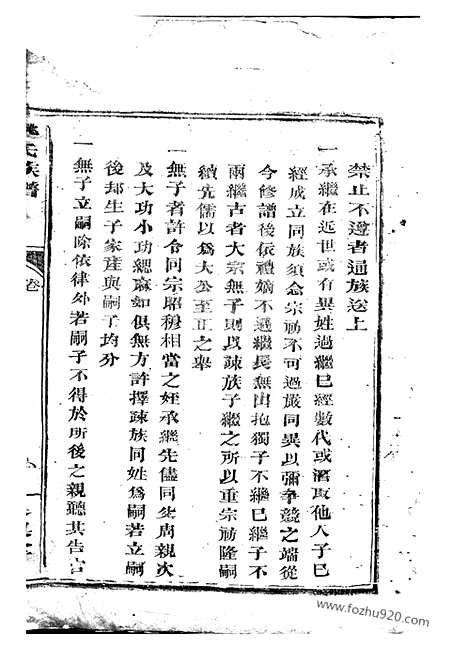 禁止不遵者通族送上
一承繼在近世或有異姓過繼已經數代或酒取他人子已
經成立同族須念宗祊不可過嚴同異以彌爭競之端從
今修譜後依禮嫡不過繼長無出抱獨子不繼已繼子不
兩繼古者大宗無子則以疎族子繼之所以重宗祊隆嗣
續先儒以爲大公至正之舉
一無子者許令同宗昭穆相當之姪承繼先儘同父周親次
及大功小功緦麻如俱無方許擇疎族同姓爲嗣若立嗣
後却生子家產與嗣子均分
一無子立嗣除依律外若嗣子不得於所後之親聽其告官
氏族譜
卷
www.fozhu920.com